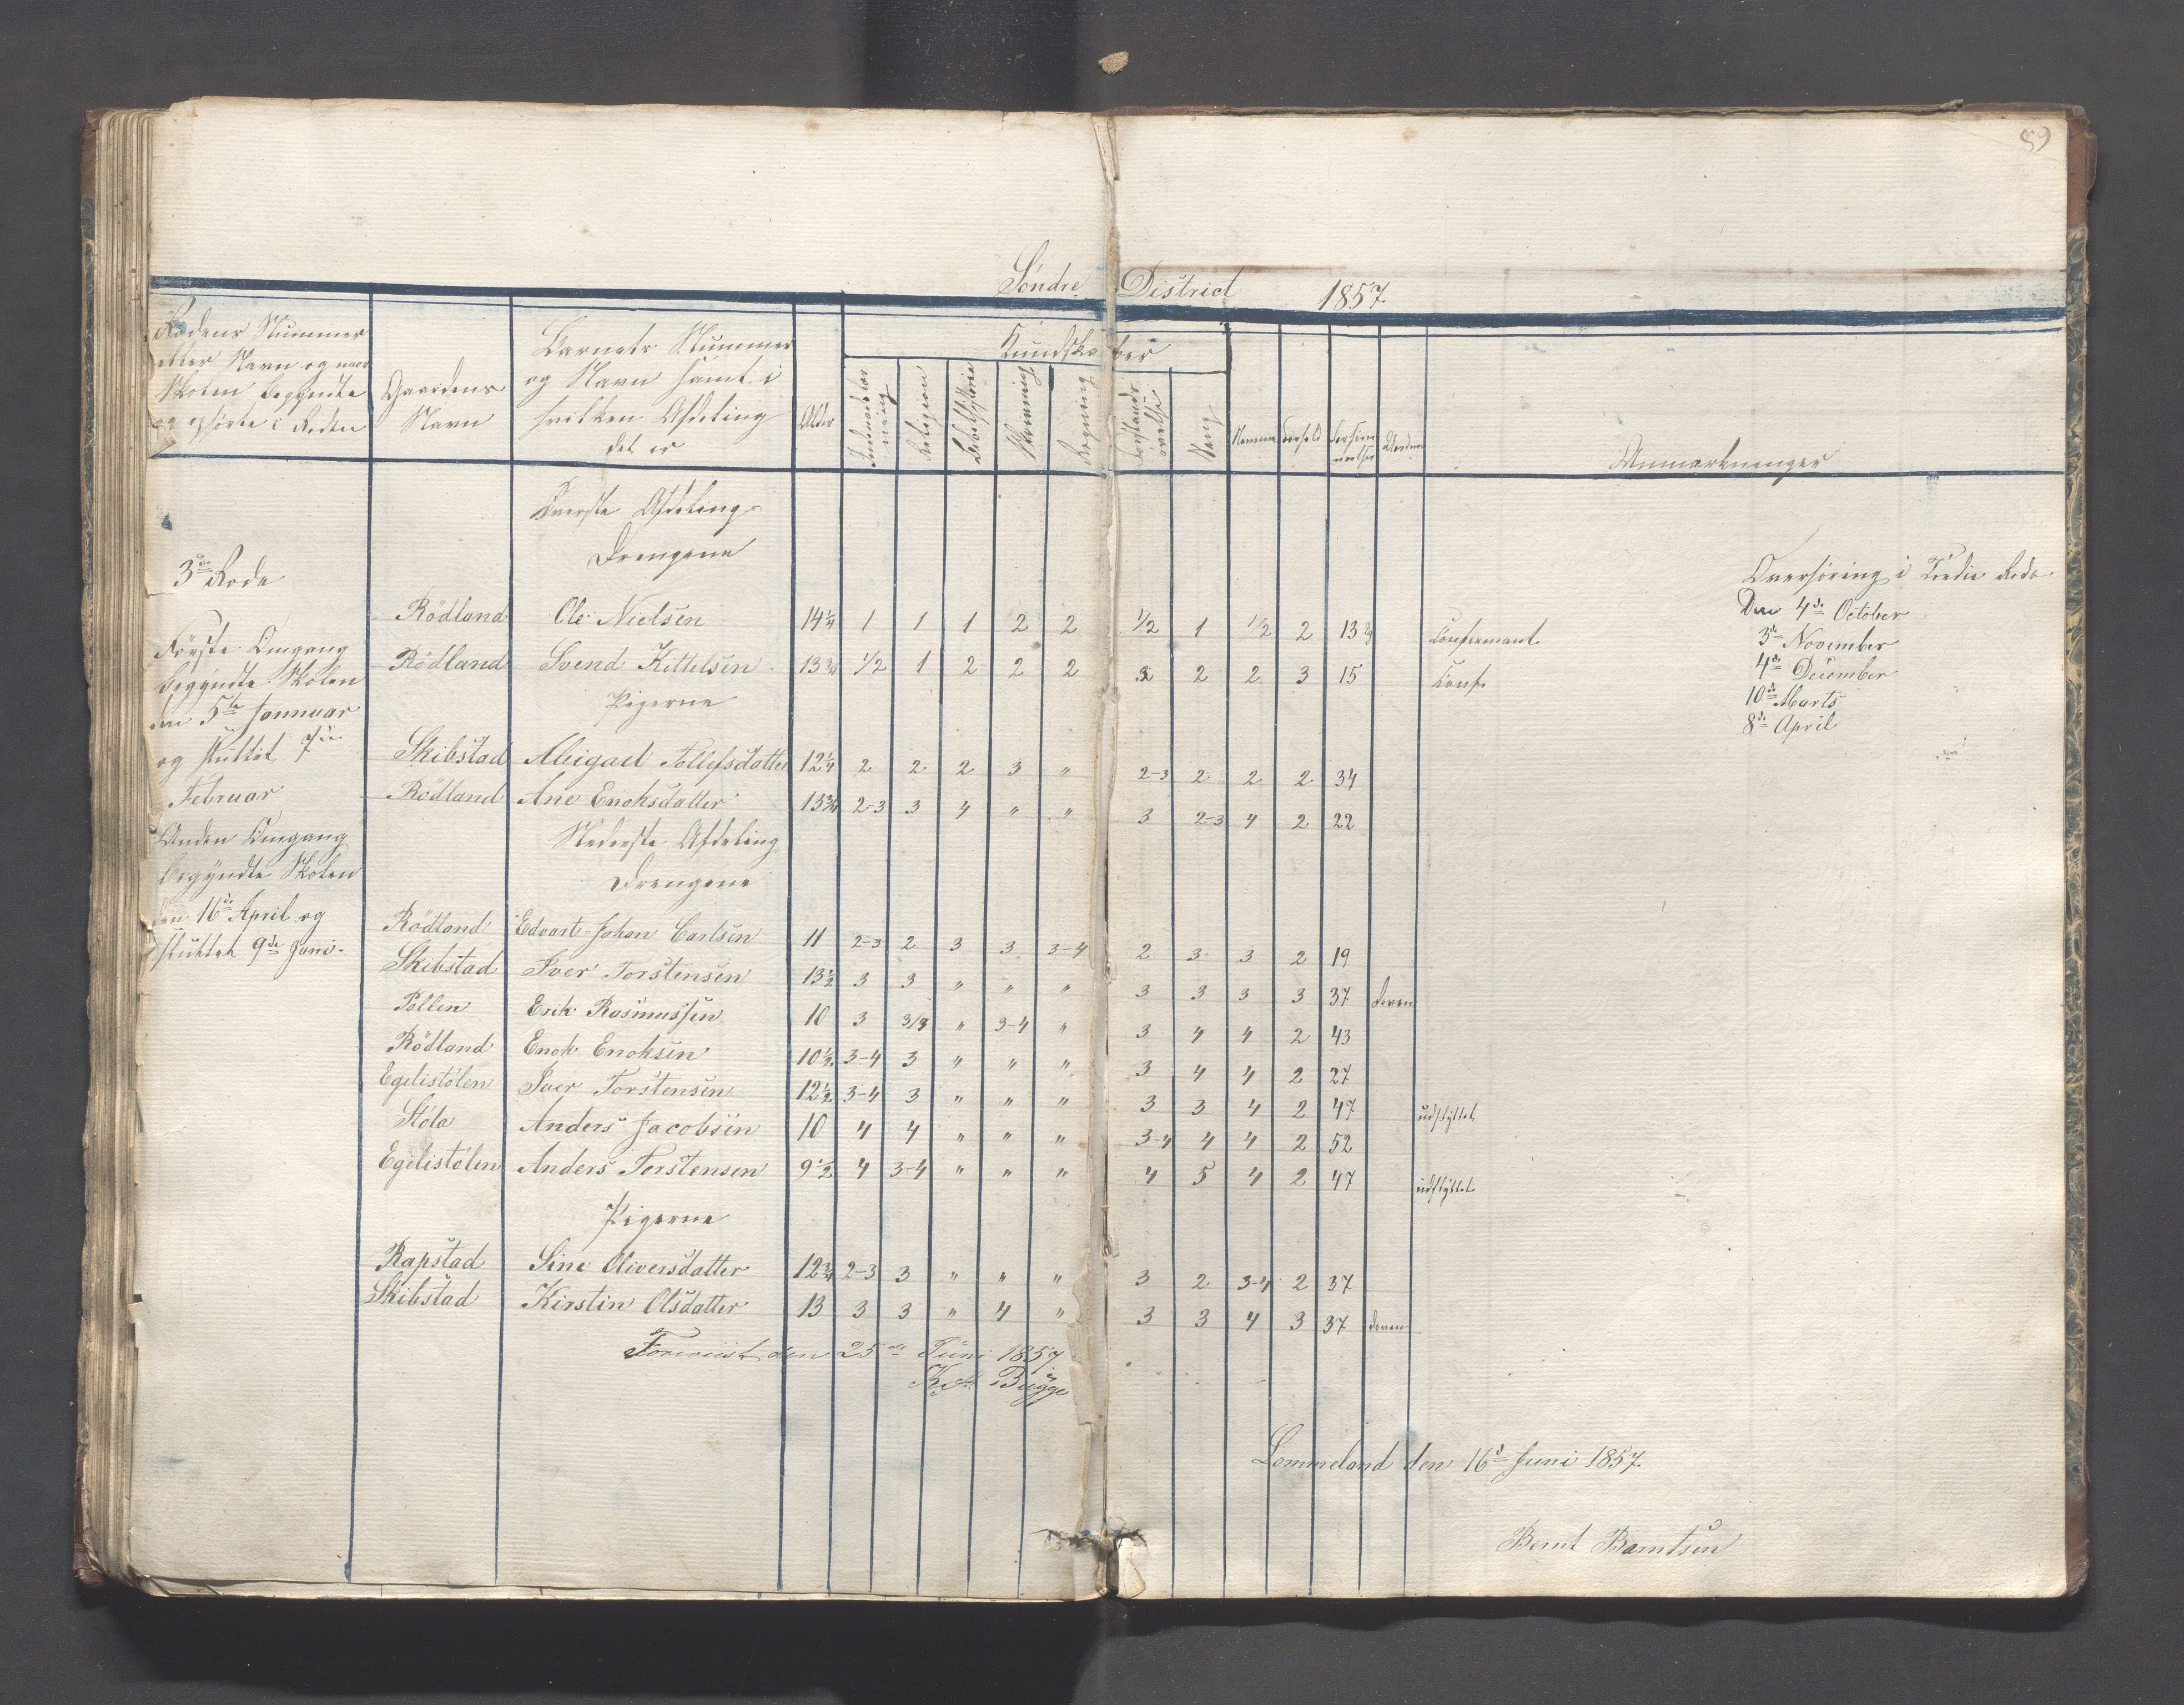 89
Söndre District 1857.
Rodens Nummer
eller Navn og naar
Skolen begyndte
og ophörte i Roden
Gaardens
Navn
Barnets Nummer
og Navn samt i
hvilken Afdeling
det er
Alder
Kundskaber
Indenadslæsning
Religion
Bibelhistorie
Skrivning
Regning
Forstandsövelse
Sang
Nemme
Forhold
Forsömmelser
Anmærkninger
Överste Afdeling
Drengene
3die Rode
Rödland Ole Nielsen 14¼ 1 1 1 2 2 1/2 1 1/2 2 13 Confirmant
Rödland Svend Kittelsen 13¾ 1/2 1 2 2 2 2 2 2 3 15 Conf.
Pigerne
Skibstad Abigael Tollefsdatter 12¼ 2 2 2 3 " 2-3 2 2 2 34
Rödland Ane Enoksdatter 13¾ 2-3 3 4 " " 3 2-3 4 2 22
Nederste Afdeling
Drengene
Rödland Edvart Johan Carlsen 11 2-3 2 3 3 3-4 2 3 3 2 19
Skibstad Iver Torstensen 13½ 3 3 " " " 3 3 3 3 37 doven
Pollen Erik Rasmussen 10 3 3/4 " 3-4 " 3 4 4 2 43
Rödland Enok Enoksen 10½ 3-4 3 " " " 3 4 4 2 27
Egelistölen Iver Torstensen 12½ 3-4 3 " " " 3 3 4 2 47 udflyttet
Stöla Anders Jacobsen 10 4 4 " " " 3-4 4 4 2 52
Egelistölen Anders Torstensen 9½ 4 3-4 " " " 4 5 4 2 47 udflyttet
Pigerne
Rapstad Sine Oliversdatter 12¾ 2-3 3 " " " 3 2 3-4 2 37
Skibstad Kirstin Olsdatter 13 3 3 " 4 " 3 3 4 3 37 doven
Förste Omgang
begyndte Skolen
den 5te Januar
og sluttet 7de
Februar
Anden Omgang
begyndte Skolen
den 16de April og
sluttet 9de Juni.
Overhöring i Tredie Rode
Den 4de October
3de November
4de December
10de Marts
8de April
Foreviist den 25de Juni 1857.
Bugge
Lommeland den 16de Juni 1857.
Bernt Barntsen